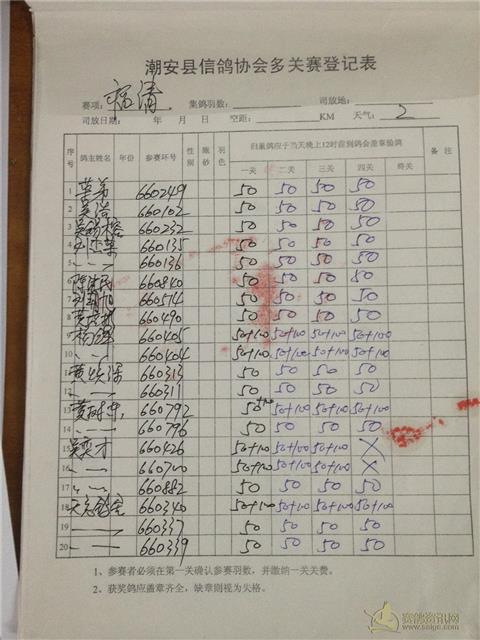 潮安县信鸽协会多关赛登记表
赛项： 福清 集鸽羽数： 司放地：
司放日期： 年 月 日 空距： KM 天气： 2
序号 鸽主姓名 年份 参赛环号 性别 眼砂 羽色 归巢鸽应于当天晚上12时前到鸽会盖章验鸽 备注
一关 二关 三关 四关 终关
1 660249 50 50 50 50
2 660102 50 50 50 50
3 660232 50 50 50 50
4 660135 50 50 50 50
5 660136 50 50 50 50
6 660840 50 50 50 50
7 660514 50 50 50 50
8 660490 50 50 50 50
9 660405 50+100 50+100 50+100 50+100
10 660404 50+100 50+100 50+100 50+100
11 660313 50 50 50 50
12 660311 50 50 50 50
13 660792 50+100 50+100 50+100 50+100
14 660796 50 50 50 50
15 660426 50+100 50+100 50+100 X
16 660700 50+100 50+100 50+100 X
17 660882 50 50 50 50
18 660340 50+100 50+100 50+100 50+100
19 660337 50 50 50 50
20 660339 50 50 50 50
1、参赛者必须在第一关确认参赛羽数，并缴纳一关关费。
2、获奖鸽应盖章齐全，缺章则视为失格。
赛鸽资讯网
www.saige.com